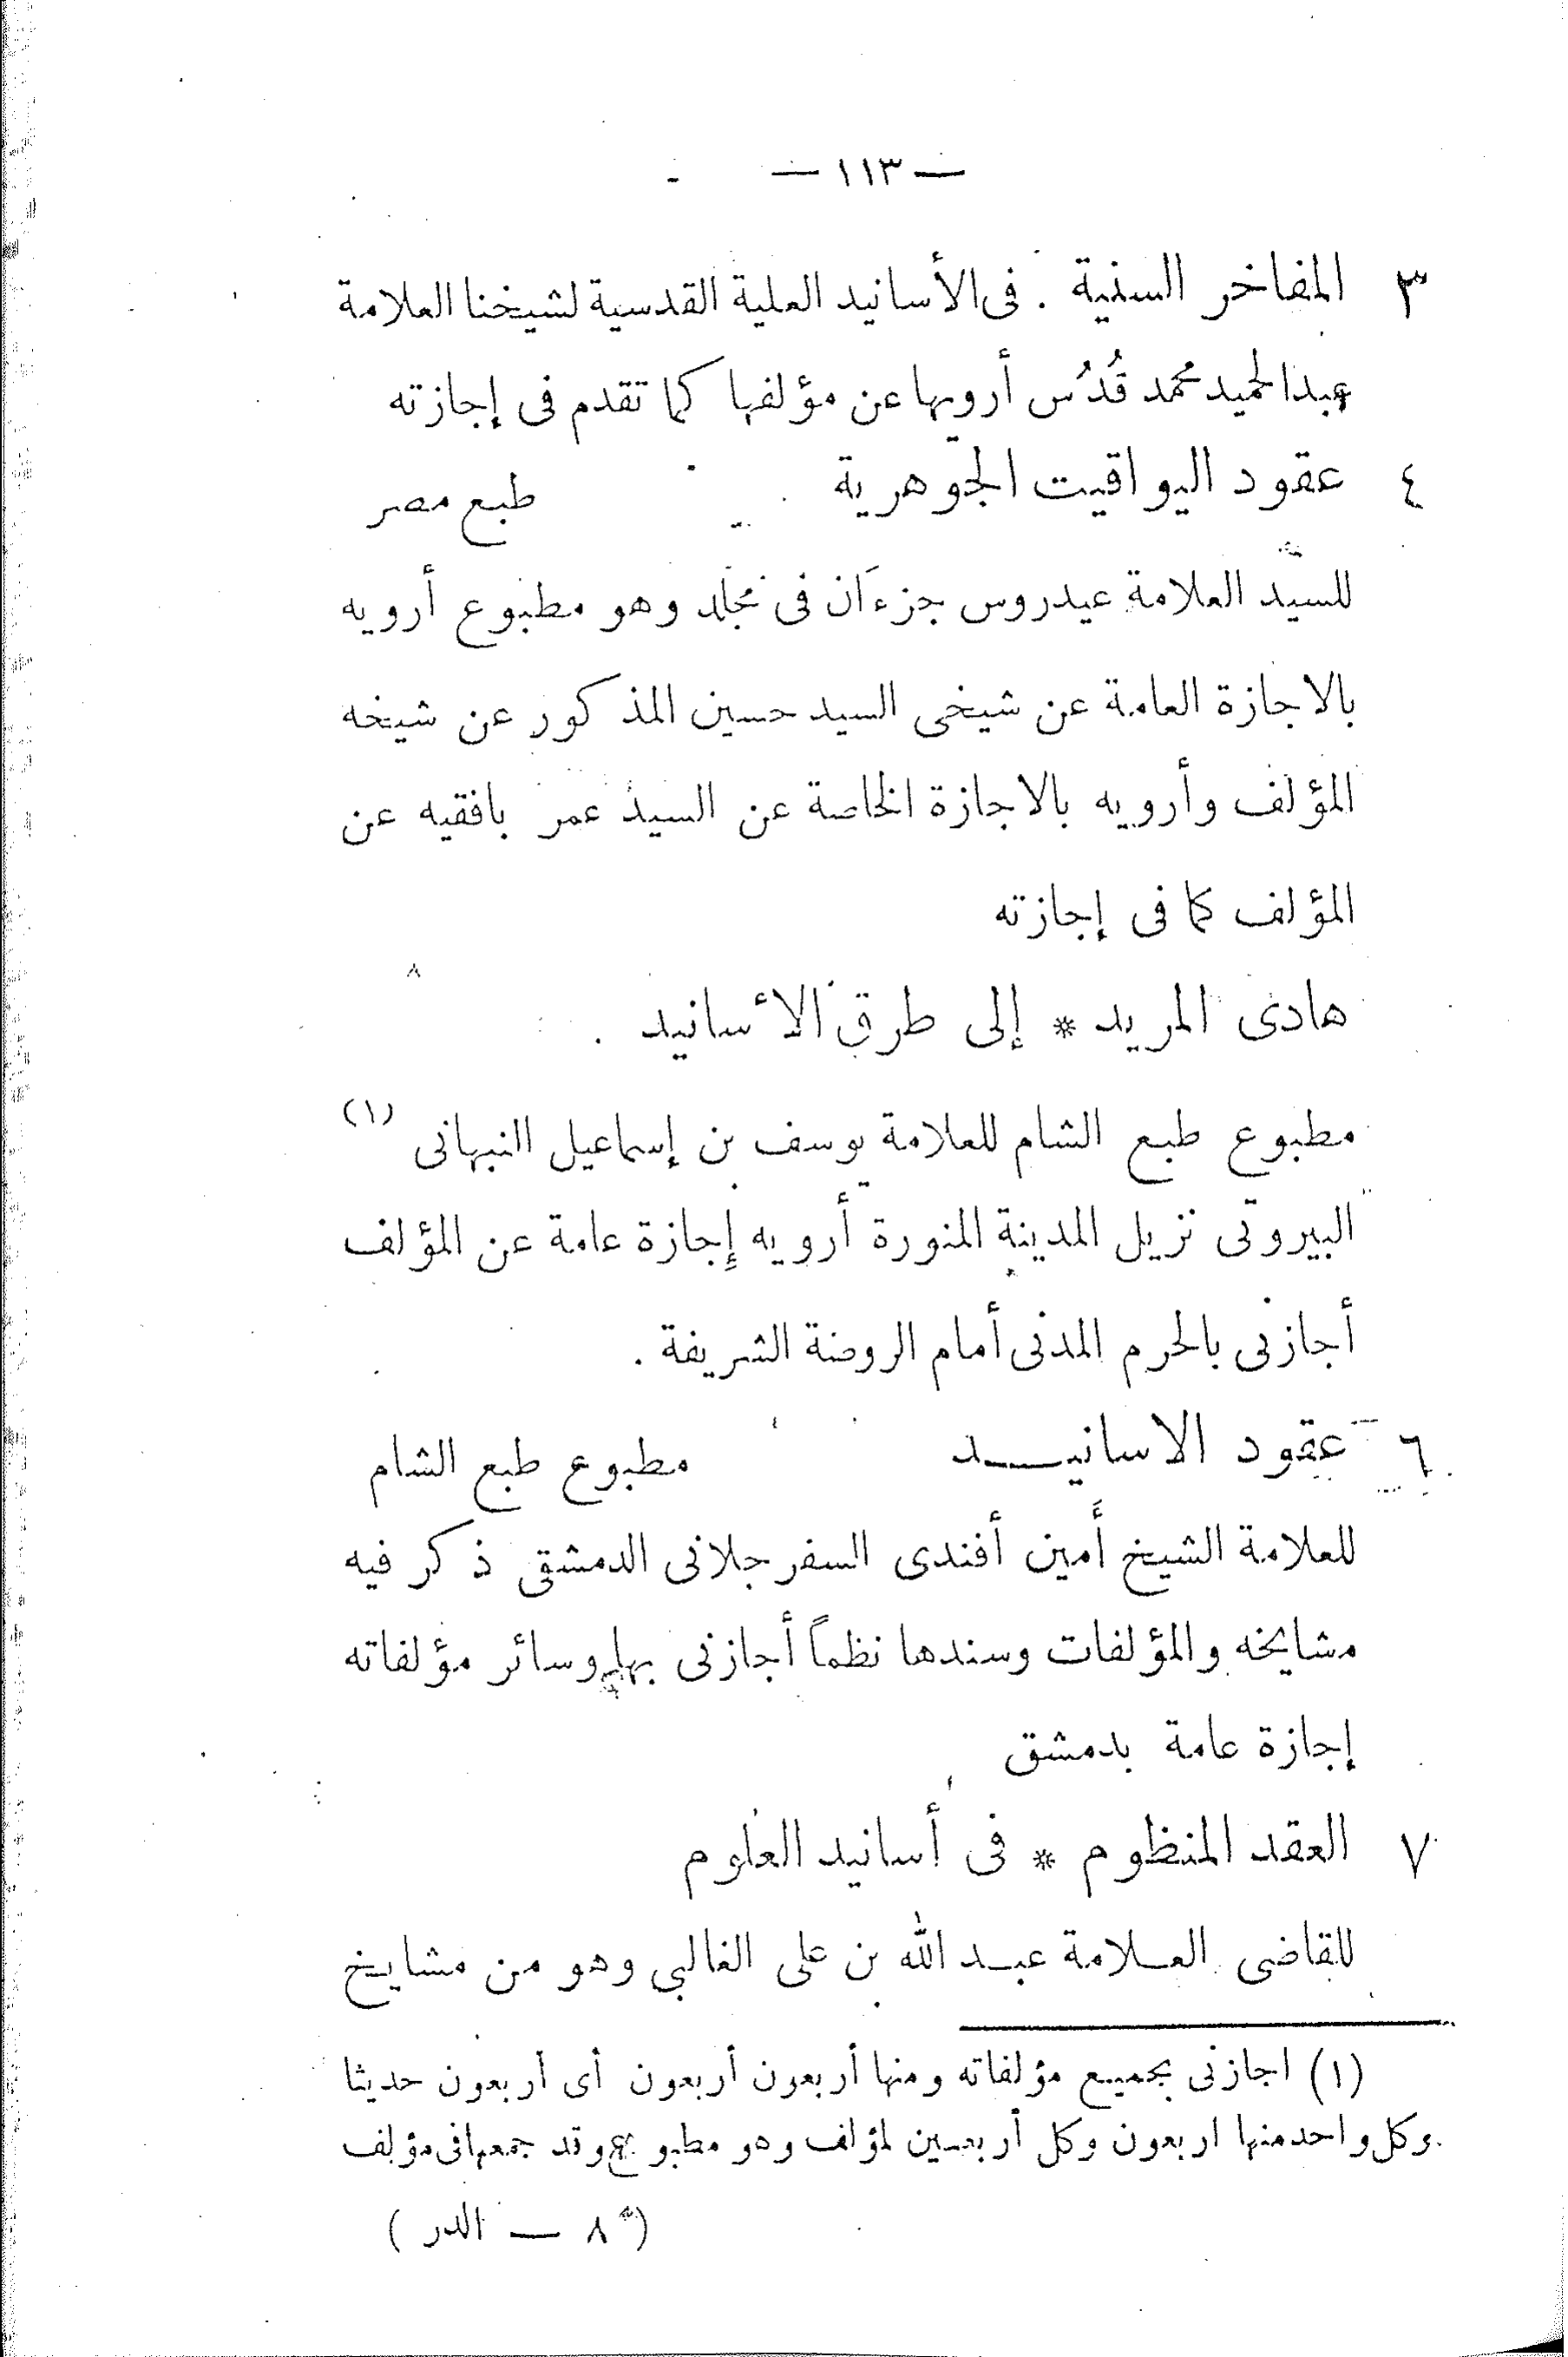 — ١١٣ —
٣ المفاخر السنية . فى الأسانيد العلية القدسية لشيخنا العلامة
عبد الحميد محمد قُدُس أرويها عن مؤلفها كما تقدم فى إجازته
٤ عقود اليواقيت الجوهرية طبع مصر
للسيد العلامة عيدروس جزءان فى مجلد وهو مطبوع أرويه
بالاجازة العامة عن شيخى السيد حسين المذكور عن شيخه
المؤلف وأرويه بالاجازة الخاصة عن السيد عمر بافقيه عن
المؤلف كما فى إجازته
هادى المريد * إلى طرق الأسانيد .
مطبوع طبع الشام للعلامة يوسف بن إسماعيل النبهانى (١)
البيروتى نزيل المدينة المنورة أرويه إجازة عامة عن المؤلف
أجازنى بالحرم المدنى أمام الروضة الشريفة .
٦ عقود الاسانيـــد مطبوع طبع الشام
للعلامة الشيخ أمين أفندى السفرجلانى الدمشقى ذكر فيه
مشايخه والمؤلفات وسندها نظماً أجازنى بها وسائر مؤلفاته
إجازة عامة بدمشق
٧ العقد المنظوم * فى أسانيد العلوم
للقاضى العـلامة عبـد الله بن على الغالبى وهو من مشايخ
(١) اجازنى بجميع مؤلفاته ومنها أربعون أربعون أى أربعون حديثا
وكل واحد منها اربعون وكل أربعين لمؤلف وهو مطبوع وقد جمعها فى مؤلف
(٨ — الدر )